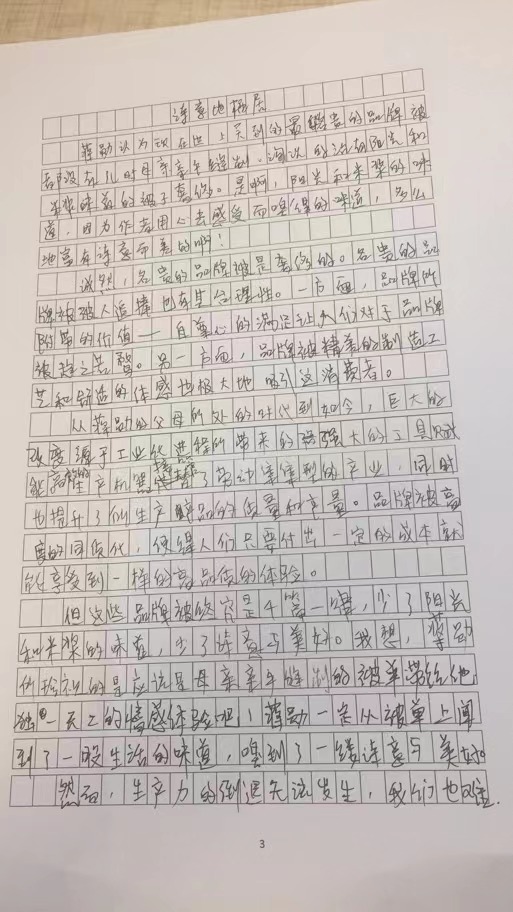 诗意地栖居
蒋勋认为现在世上买到的最昂贵的品牌被
都没有儿时母亲亲手缝制、浣洗的沾有阳光和
米浆味道的被子奢侈。是啊，阳光和米浆的味
道，因为作者用心去感受而嗅得的味道，多么
地富有诗意而美好啊！
诚然，名贵的品牌被是奢侈的。名贵的品
牌被被人追捧也有其合理性。一方面，品牌所
附带的价值——自尊心的满足让人们对于品牌
被趋之若鹜。另一方面，品牌被精美的制造工
艺和舒适的体感也极大地吸引这消费者。
从蒋勋的父母所处的时代到如今，巨大的
改变源于工业化进程所带来的强大的工具
生产机器了劳动密集型的产业，同时
也提升了所生产产品的质量和产量。品牌被高
度的同质化，使得人们只要付出一定的成本就
能享受到一样的高品质的体验。
但这些品牌被终究是千篇一律，少了阳光
和米浆的味道，少了诗意与美好。我想，蒋勋
所珍视的是应该是母亲亲手缝制的被单带给他
独一无二的情感体验吧！蒋勋一定从被单上闻
到了一股生活的味道，嗅到了一缕诗意与美好
然而，生产力的倒退无法发生，我们也难
3